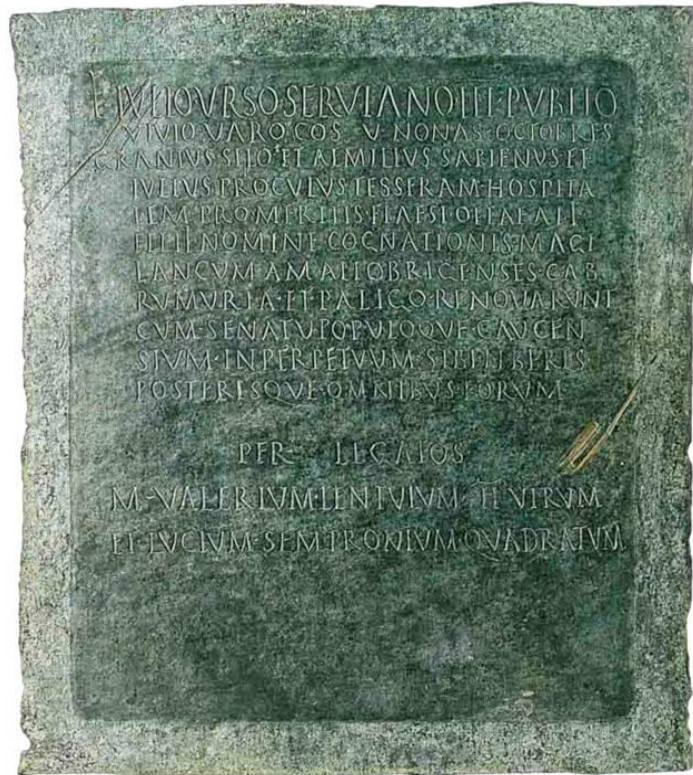 L IVLIO VRSO SERVIANO III PVBLIO
VIVIO VARO COS V NONAS OCTOBRES
GRANIVS SILO ET AEMILIVS SAPIENVS ET
IVLIVS PROCVLVS TESSERAM HOSPITA
LEM PRO MERITIS ELAESI OTTAE AII
FILII NOMINE COGNATIONIS MAGI
LANCVM AMALLOBRICENSES CAB
RVMVRIA ET PALICO RENOVARVNT
CVM SENATV POPVLOQVE CAVCEN
SIVM IN PERPETVVM SIBI LIBERIS
POSTERISQVE OMNIBVS EORVM
PER LEGATOS
M VALERIVM LENTVLVM II VIRVM
ET LVCIVM SEMPRONIVM QVADRATVM